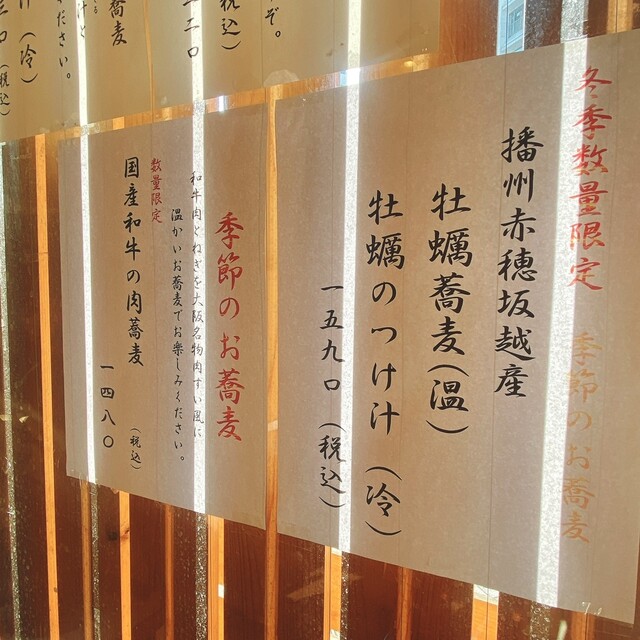 冬季数量限定 季節のお蕎麦
播州赤穂坂越産
牡蠣蕎麦(温)
牡蠣のつけ汁(冷)
一五九〇(税込)
季節のお蕎麦
和牛肉とねぎを大阪名物肉すい風に
温かいお蕎麦でお楽しみください。
数量限定
国産和牛の肉蕎麦
一四八〇(税込)
ぞ。
税込)
二〇
蕎麦
ださい。
汁(冷)
(税込)